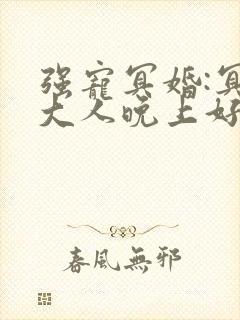 强寵冥婚:冥
大人晚上好
春風無邪